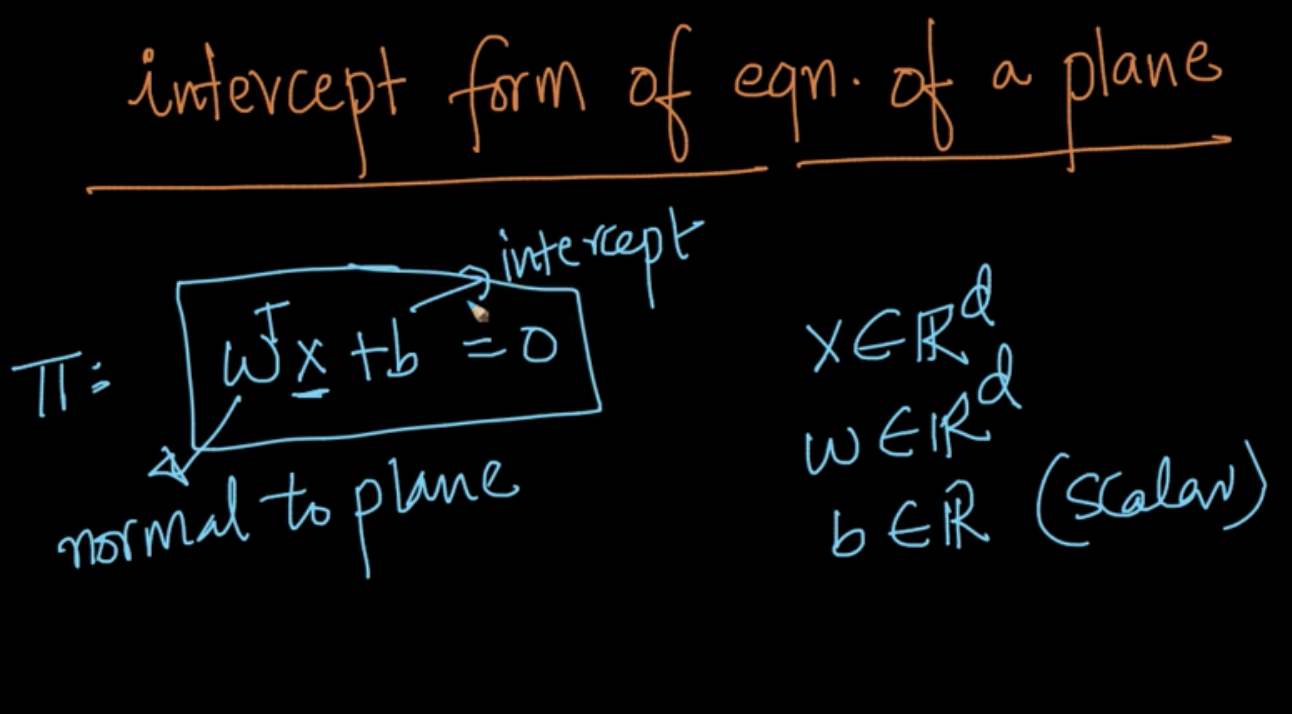 intercept form of eqn. of a plane
intercept
π: wᵀx + b = 0
normal to plane
x ∈ ℝᵈ
w ∈ ℝᵈ
b ∈ ℝ (scalar)